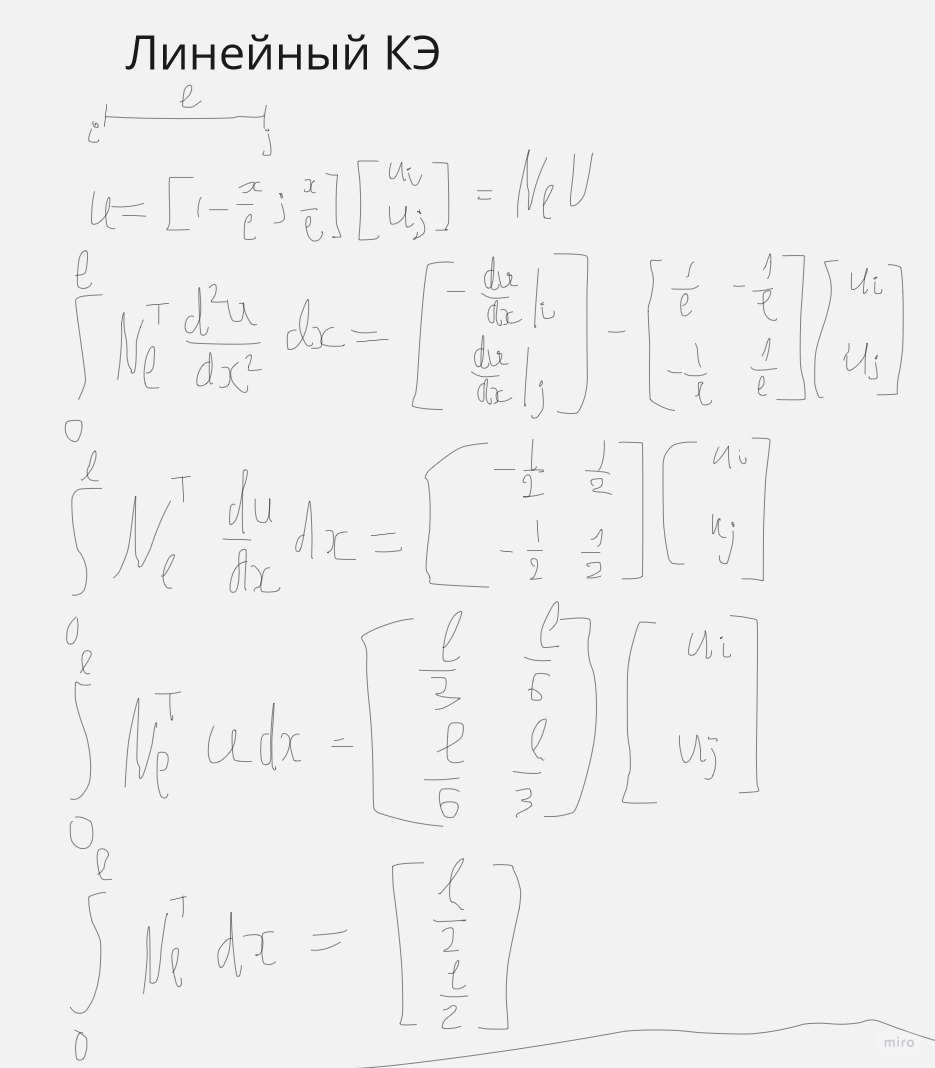 Линейный КЭ
l
i j
u = [1 - x/l ; x/l] [u_i u_j] = N_l U
∫_0^l N_l^T d²u/dx² dx = [-du/dx|_i du/dx|_j] - [1/l -1/l -1/l 1/l] [u_i u_j]
∫_0^l N_l^T du/dx dx = [-1/2 1/2 -1/2 1/2] [u_i u_j]
∫_0^l N_l^T u dx = [l/3 l/6 l/6 l/3] [u_i u_j]
∫_0^l N_l^T dx = [l/2 l/2]
miro